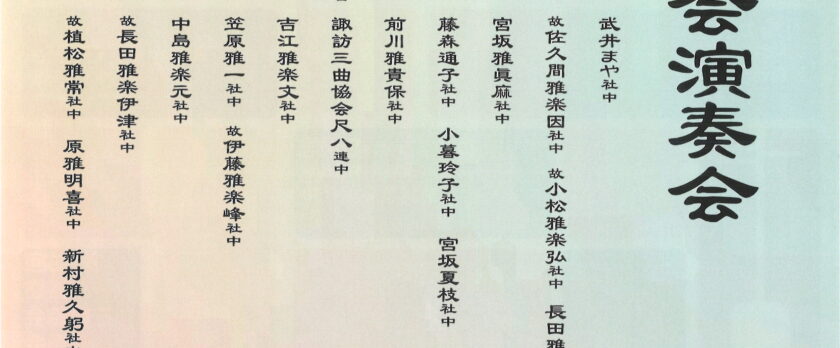 会演奏会
武井まや社中
故佐久間雅楽因社中 故小松雅楽弘社中 長田雅
宮坂雅眞麻社中
藤森通子社中 小暮玲子社中 宮坂夏枝社中
前川雅貴保社中
諏訪三曲協会尺八連中
吉江雅楽文社中
笠原雅一社中 故伊藤雅楽峰社中
中島雅楽元社中
故長田雅楽伊津社中
故植松雅常社中 原雅明喜社中 新村雅久躬社